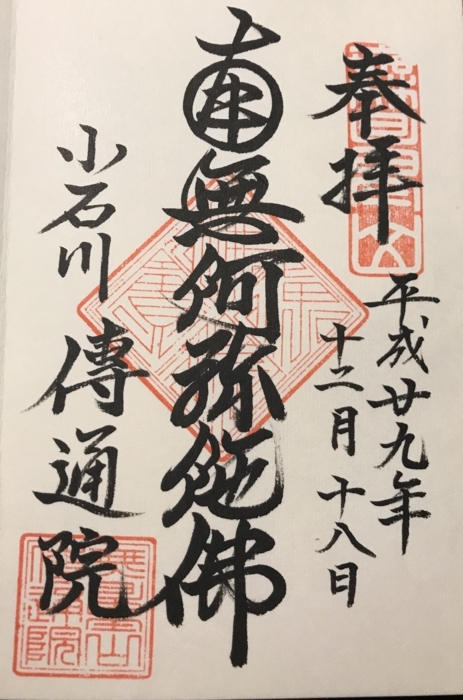 奉拝
平成廿九年
十二月十八日
南無阿弥陀佛
小石川
傳通院